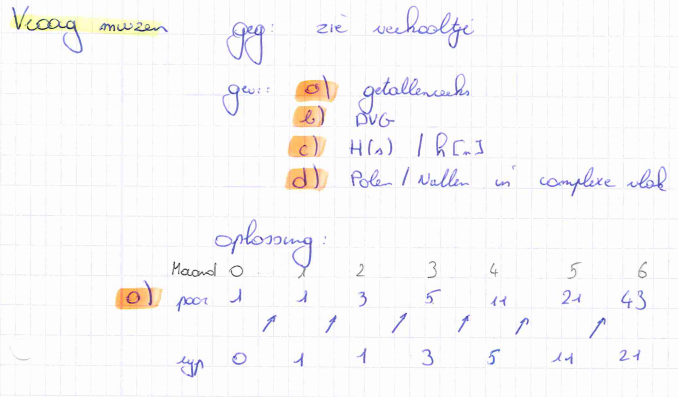 Vraag muizen geg: zie verhaaltje
gevr: a) getallenreeks
b) DVG
c) H(s) / h[n]
d) Polen / Nullen in complexe vlak
oplossing:
Maand 0 1 2 3 4 5 6
a) paar 1 1 3 5 11 21 43
0 1 1 3 5 11 21